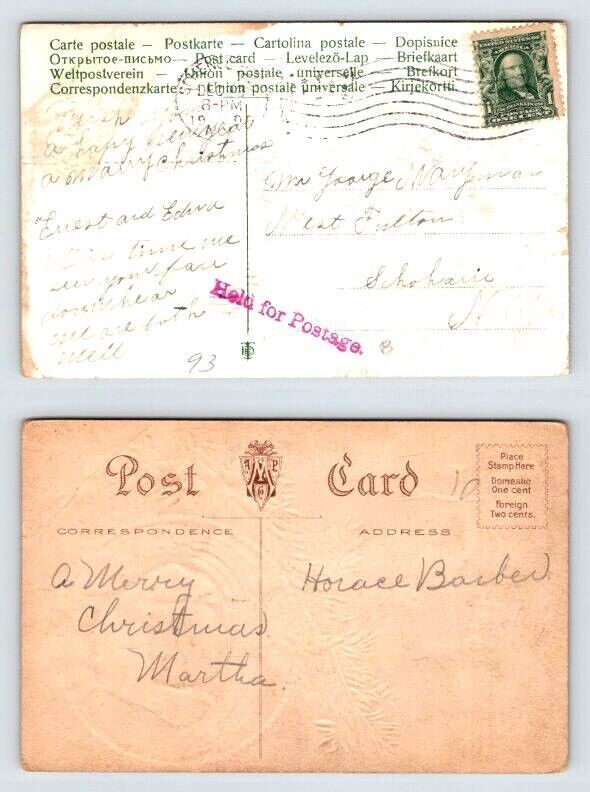 Carte postale — Postkarte — Cartolina postale — Dopisnice
Открытое-письмо — Post card — Levelező-Lap — Briefkaart
Weltpostverein — Union postale universelle — Brefkort
Correspondenzkarte — Union postale universale — Kirjekortti.
DEC
8-PM
UNITED STATES OF AMERICA
1 1
ONE CENT
wish
a happy new year
a mary christmas
Ernest and Edna
time we
see your face
hear
we are both
well
93
Mr George Wayman
West Fulton
Schoharie
N Y
Held for Postage.
8
Post Card
AMP
CO
10
Place
Stamp Here
Domestic
One cent
foreign
Two cents.
CORRESPONDENCE
ADDRESS
A Merry
Christmas
Martha.
Horace Barber